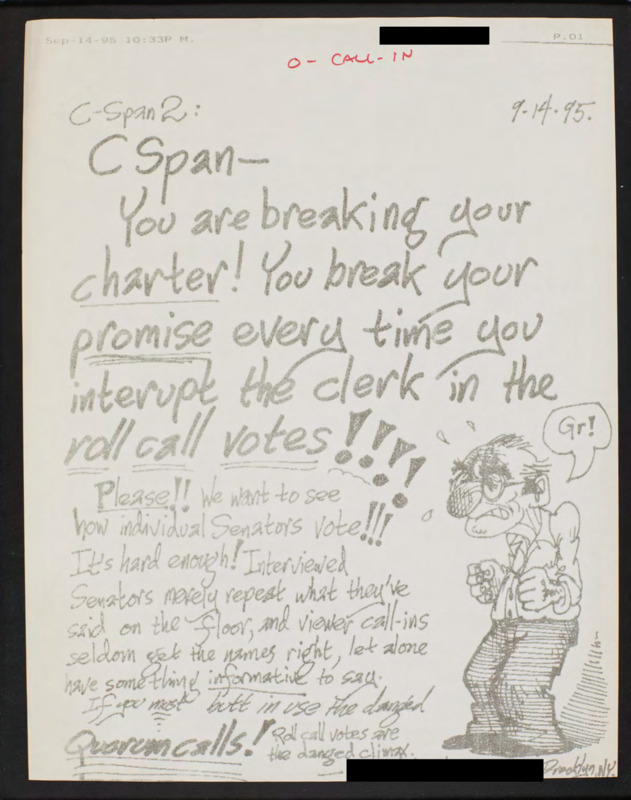 Sep-14-95 10:33P M.
P.01
O- CALL-IN
C-Span2:
9-14-95.
C Span—
You are breaking your
charter! You break your
promise every time you
interupt the clerk in the
roll call votes!!!!
Gr!
Please!! We want to see
how individual Senators vote!!!
It's hard enough! Interviewed
Senators merely repeat what they've
said on the floor, and viewer call-ins
seldom get the names right, let alone
have something informative to say.
If you must butt in use the danged
Quorum calls! Roll call votes are
the danged climax.
Brooklyn, NY.